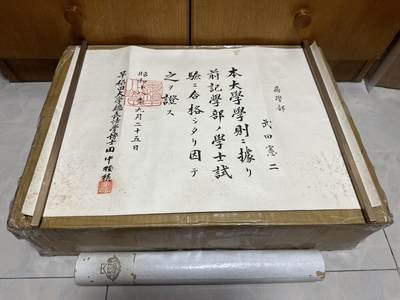 商學部
武田憲二
本大學學則ニ據リ
前記學部ノ學士試
驗ニ合格シタリ因テ
之ヲ證ス
昭和十年九月二十五日
早稻田大學總長法學博士田中穗積